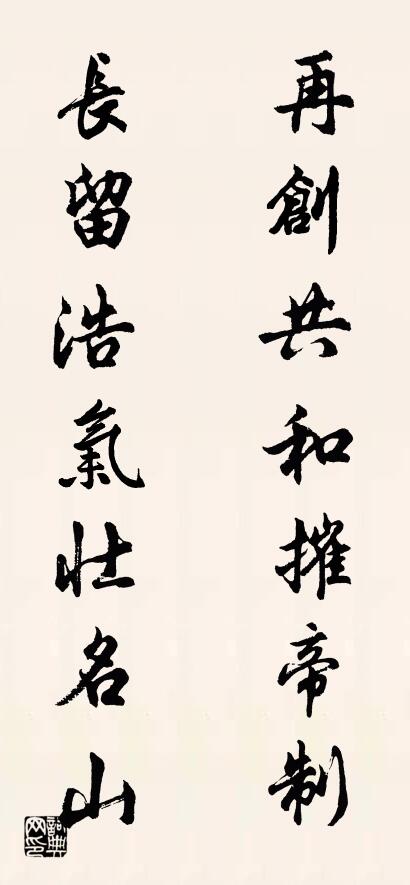 再創共和摧帝制
長留浩氣壯名山